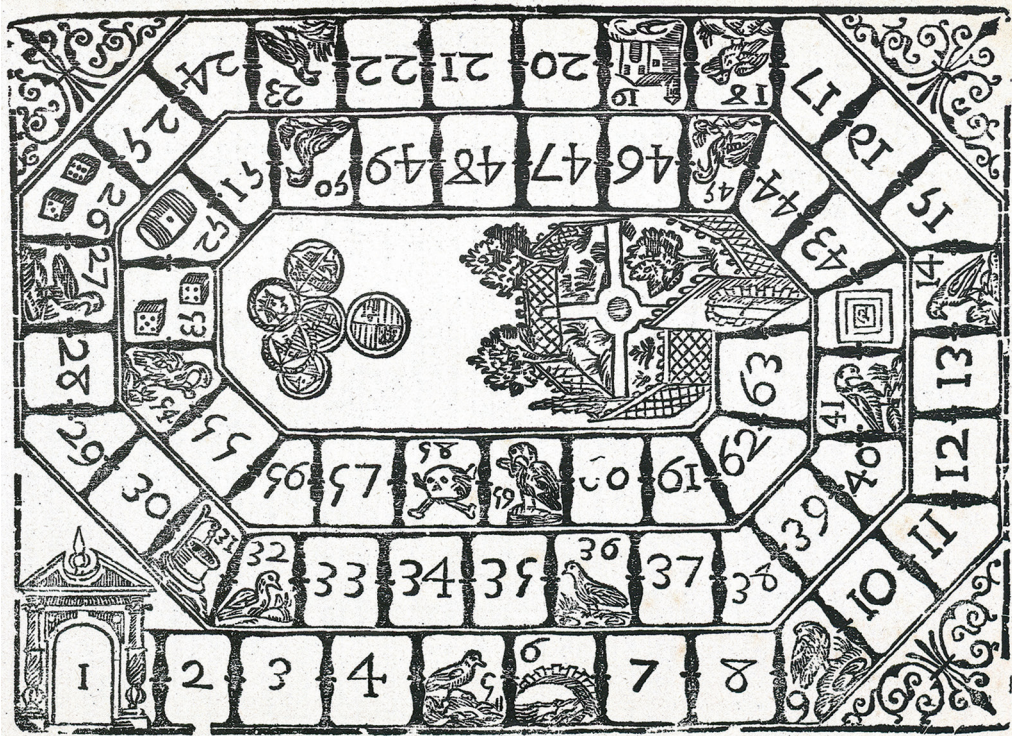 1
2
3
4
5
6
7
8
9
10
11
12
13
14
15
16
17
18
19
20
21
22
23
24
25
26
27
28
29
30
31
32
33
34
35
36
37
38
39
40
41
43
44
45
46
47
48
49
50
51
52
53
54
55
56
57
58
59
60
61
62
63